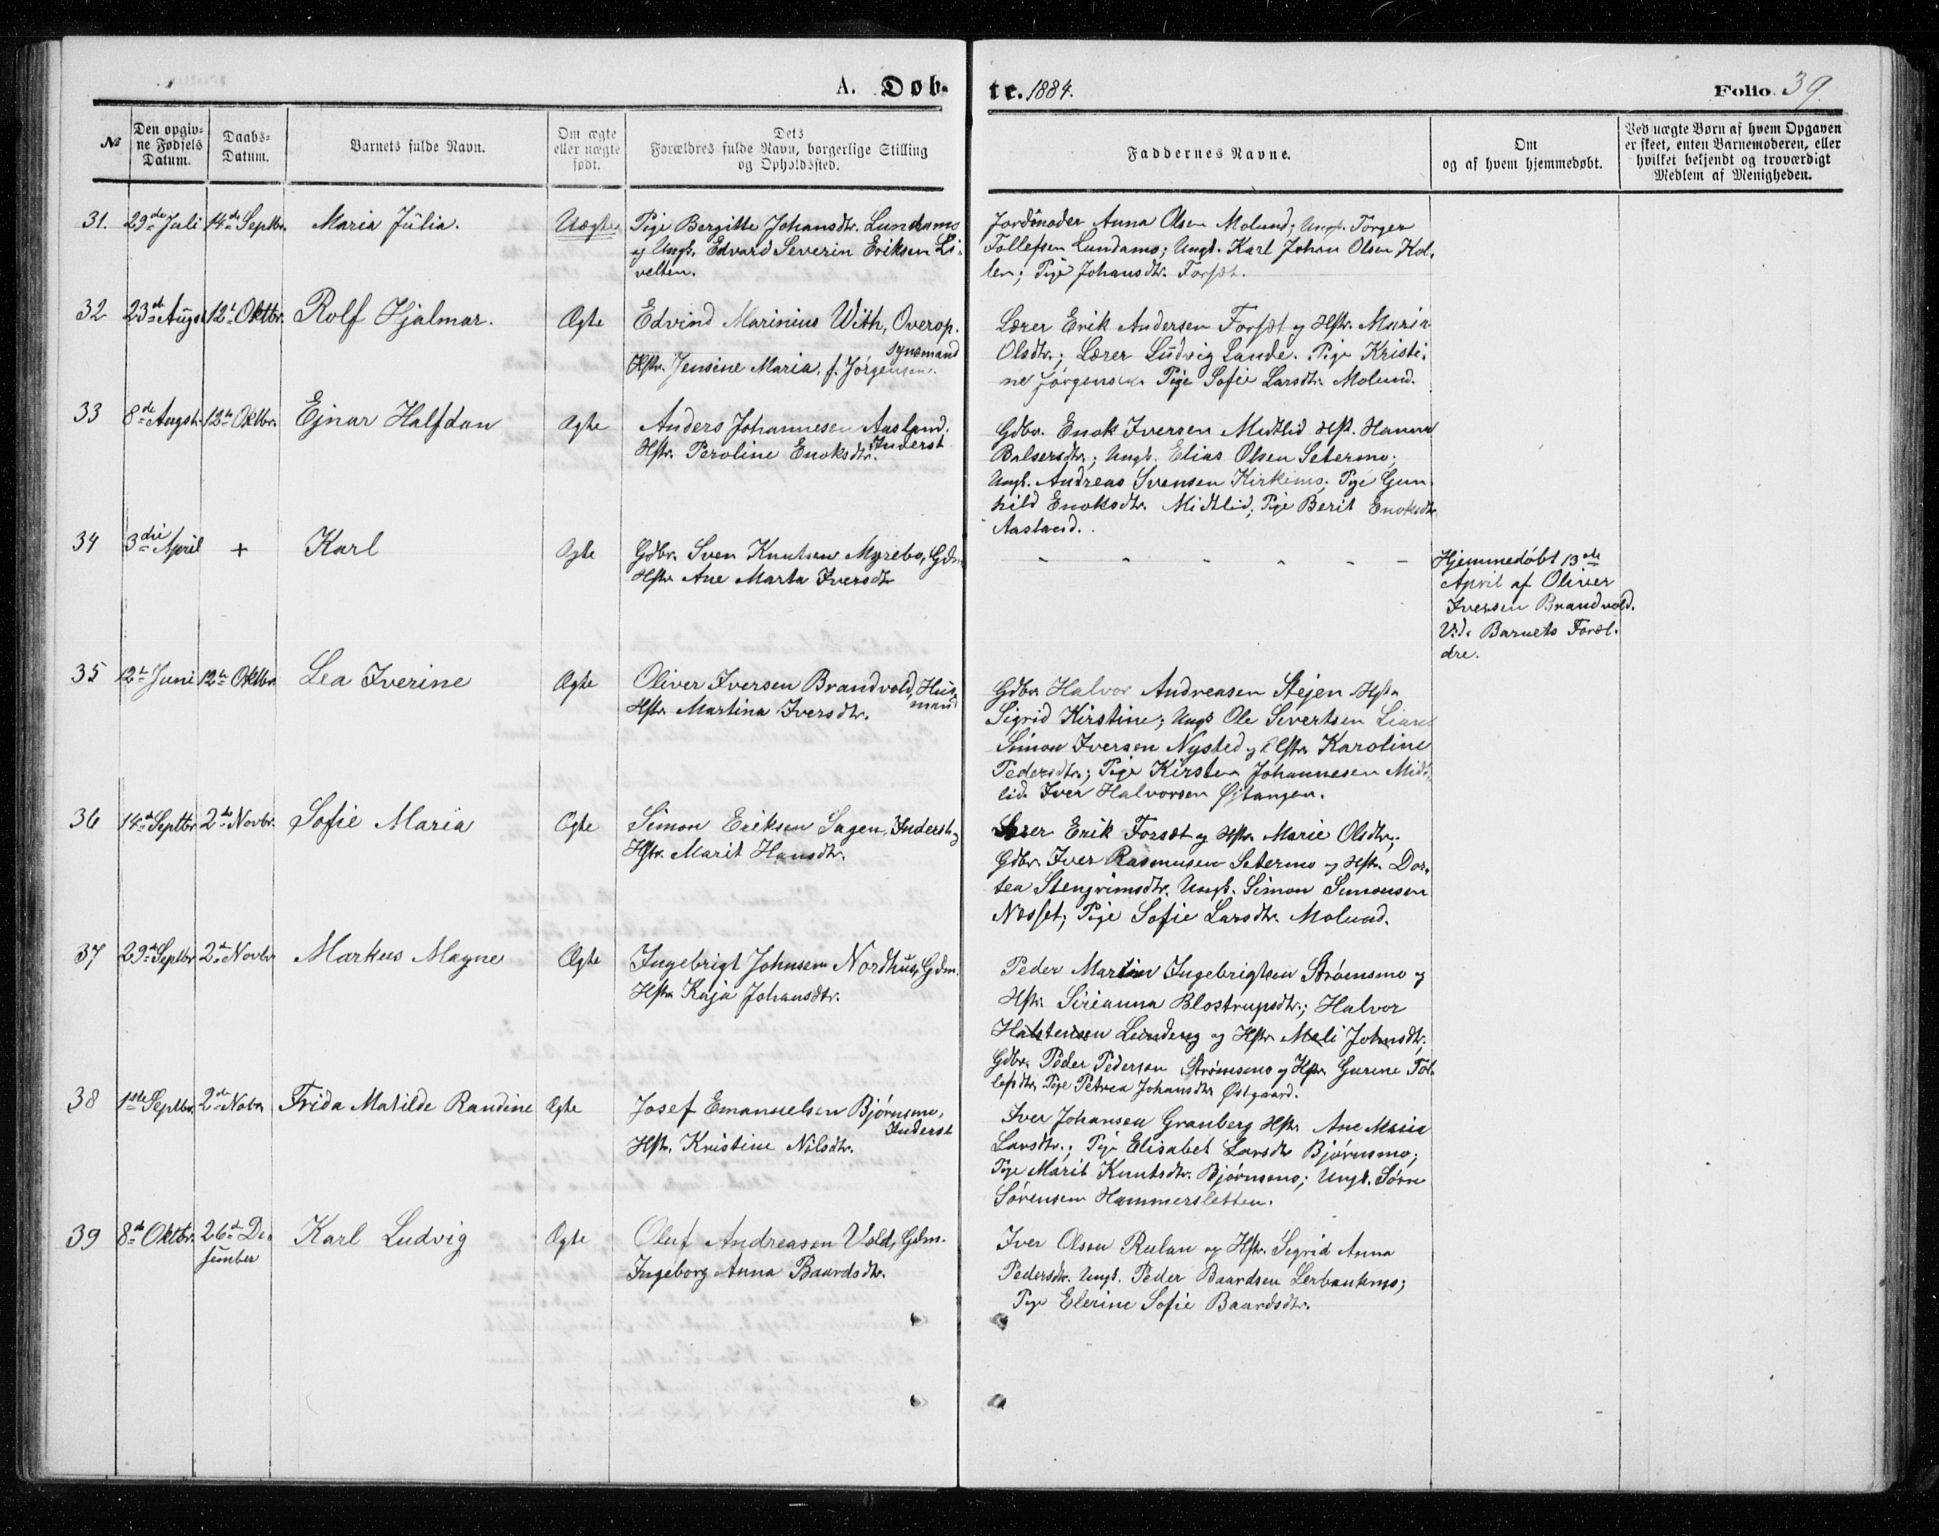 A. Døb-
te. 1884.
Folio 39.
№
Den opgiv-
ne Fødsels
Datum.
Daabs-
Datum.
Barnets fulde Navn.
Om ægte
eller uægte
født.
Dets
Forældres fulde Navn, borgerlige Stilling
og Opholdssted.
Faddernes Navne.
Om
og af hvem hjemmedøbt.
Ved uægte Børn af hvem Opgaven
er skeet, enten Barnemoderen, eller
hvilket bekjendt og troværdigt
Medlem af Menigheden.
31. 29de Juli 14de Septbr. Maria Julia. Uægte
Pige Bergitte Johansdtr. Lundamo
og Ungk. Edvard Severin Eriksen Li-
velten.
Jordmoder Anna Olsen Molund; Ungk. Torger
Tollefsen Lundamo; Ungk. Karl Johan Olsen Kol-
len; Pige Johansdtr. Forsæt.
32 23de Augst 12te Oktbr. Rolf Hjalmar. Ægte
Edvind Marinius With, Overop-
synsmand
Hstr. Jensine Maria f. Jørgensen.
Lærer Erik Andersen Forsæt og Hstr. Maria
Olsdtr.; Lærer Ludvig Lande. Pige Kristi-
ne Jørgensen Pige Sofie Larsdtr. Molund.
33 8de Augst. 12te Oktbr. Ejnar Halfdan Ægte
Anders Johannesen Aasland.
Inderst
Hstr. Peroline Enoksdtr.
Gdbr. Enok Iversen Midtlid Hst. Hanna
Balsersdtr.; Ungk. Elias Olsen Setermo;
Ungk. Andreas Svensen Kirkemo; Pige Gun-
hild Enoksdtr. Midtlid; Pige Berit Enoksdtr.
Aasland.
34 3die April + Karl Ægte
Gdbr. Sven Knutsen Myrebo, Gdm.
Hstr. Ane Marta Iversdtr
Hjemmedøbt 13de
April af Oliver
Iversen Brandvold.
Vid. Barnets Foræl-
dre.
35 12te Juni 12te Oktbr. Lea Iverine Ægte
Oliver Iversen Brandvold, Hus-
mand
Hstr. Martina Iversdtr.
Gdbr. Halvor Andreasen Stejen Hstr
Sigrid Kirstine; Ungk Ole Severtsen
Simon Iversen Nysted og Hstr. Karoline
Pedersdtr.; Pige Kirsten Johannesen Mid-
lid. Iver Halvorsen Øjtangen.
36 14de Septbr. 2den Novbr. Sofie Maria Ægte
Simon Eriksen Sagen, Inderst og
Hstr. Marit Hansdtr.
Lærer Erik Forsæt og Hstr. Marie Olsdtr.;
Gdbr. Iver Rasmusen Setermo og Hstr. Dor-
tea Stengrimsdtr. Ungk. Simon Simonsen
Næsset; Pige Sofie Larsdtr. Molund.
37 29de Septbr 2den Novbr Markus Magne Ægte
Ingebrigt Johnsen Nordhus, Gdm.
Hstr. Kaja Johansdtr.
Peder Martin Ingebrigtsen Strømsmo og
Hstr. Sirianna Blostrupsdtr.; Halvor
Halstensen Lundeng og Hstr. Meli Johnsdtr.
Gdbr. Peder Pedersen Strømsmo og Hstr. Gurine Tol-
lefsdtr. Pige Petrea Johansdtr. Østgaard.
38 1ste Septbr. 2den Novbr Frida Matilde Randine Ægte
Josef Emanuelsen Bjørnsmo,
Inderst
Hstr. Kristine Nilsdtr.
Iver Johansen Granberg Hstr. Ane Maria
Larsdtr.; Pige Elisabet Larsdtr Bjørnsmo;
Pige Marit Knutsdtr. Bjørnsmo; Ungk. Sørn
Sørensen Hammersletten.
39 8de Oktbr. 26de De-
sember Karl Ludvig Ægte
Oluf Andreasen Vold, Gdm.
Ingeborg Anna Baardsdtr.
Iver Olsen Rulan og Hstr. Sigrid Anna
Pedersdtr. Ungk. Peder Baardsen Lerbaukmo;
Pige Elerine Sofie Baardsdtr.